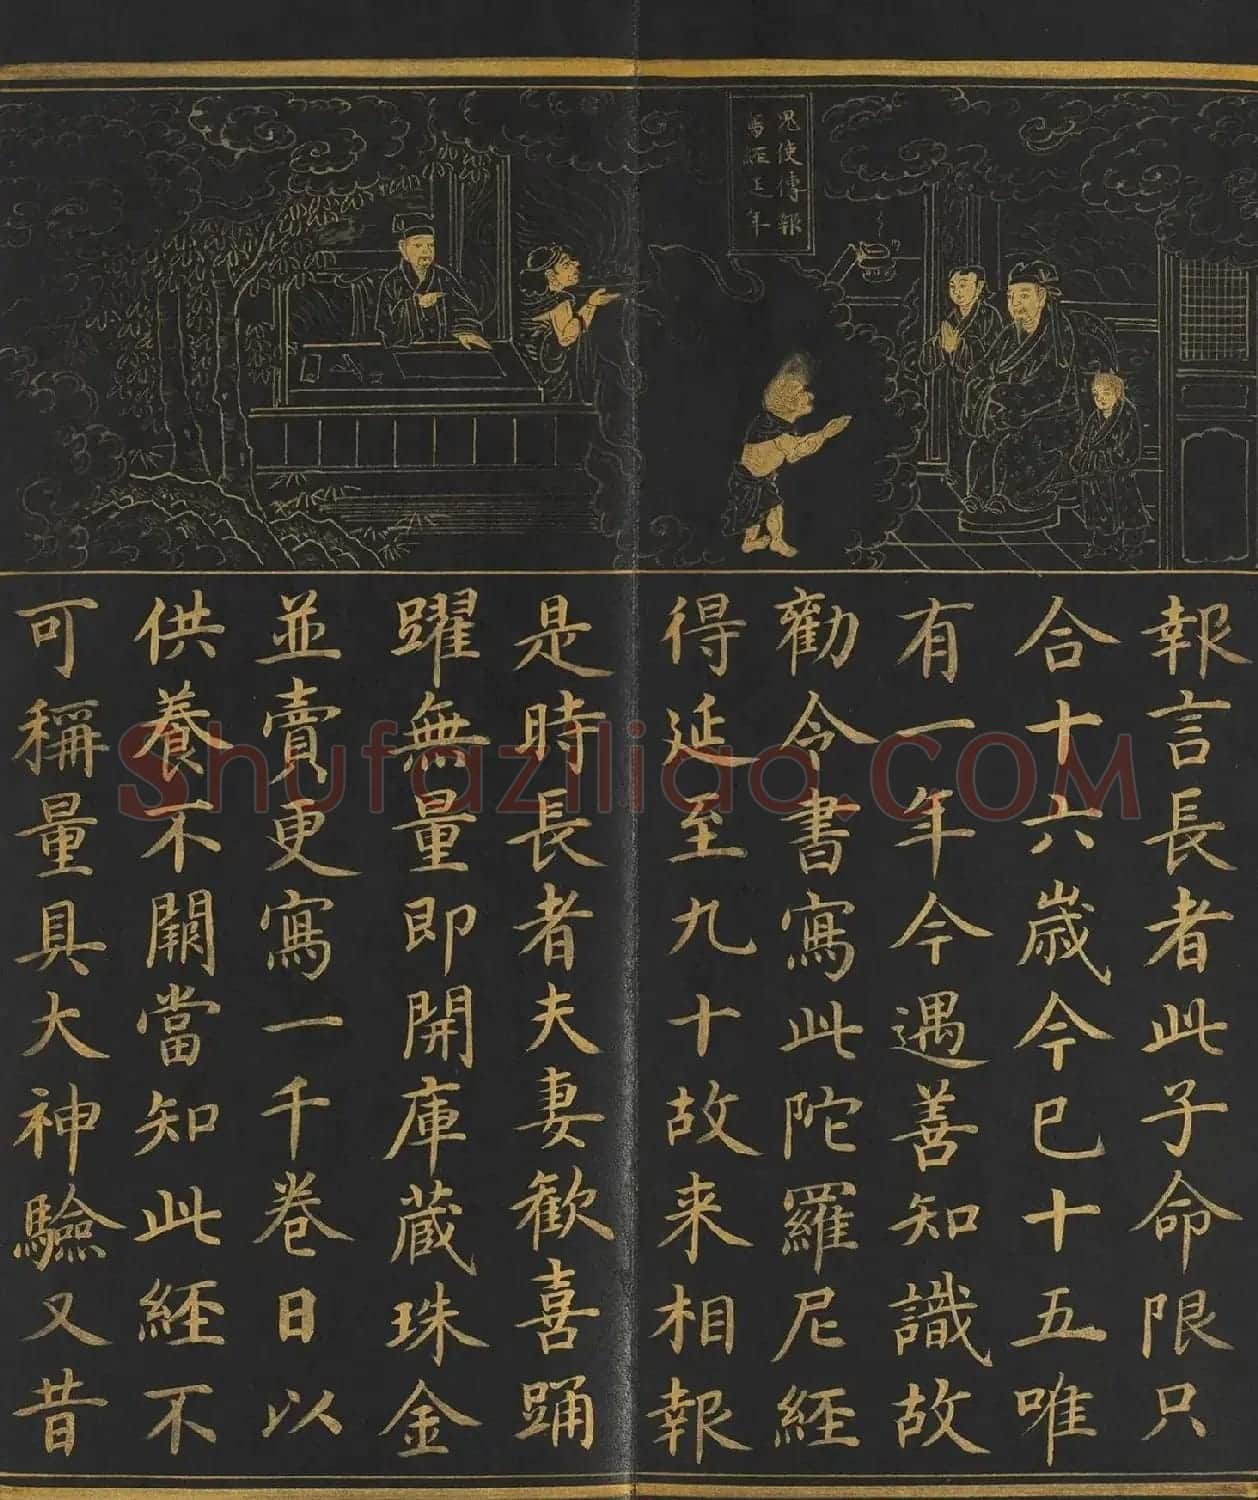 鬼使傳報
寫經延年
報言長者此子命限只
合十六歲今巳十五唯
有一年今遇善知識故
勸令書寫此陀羅尼經
得延至九十故来相報
是時長者夫妻歡喜踊
躍無量即開庫蔵珠金
並賣更寫一千卷日以
供養不闕當知此經不
可稱量具大神驗又昔
Shufaziliao.COM